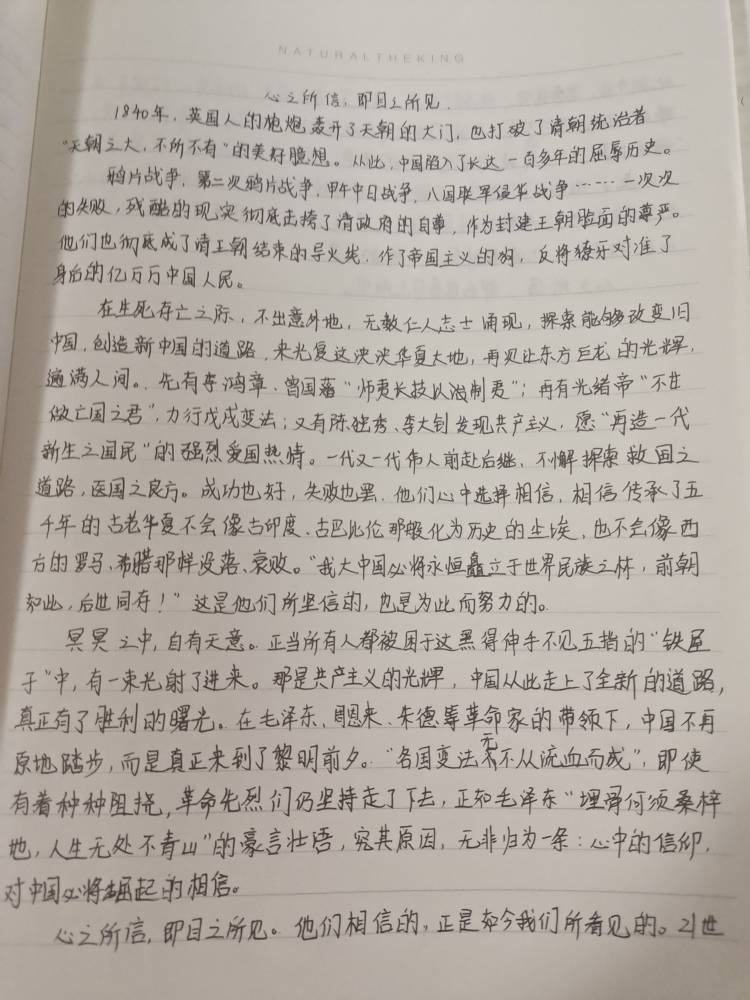 NATURALTHEKING
心之所信，即目之所见.
1840年，英国人的炮炮轰开了天朝的大门，也打破了清朝统治者
“天朝之大，不所不有”的美好臆想。从此，中国陷入了长达一百多年的屈辱历史。
鸦片战争，第二次鸦片战争，甲午中日战争，八国联军侵华战争……一次次
的失败，残酷的现实彻底击垮了清政府的自尊，作为封建王朝脸面的尊严。
他们也彻底成了清王朝结束的导火线，作了帝国主义的狗，反将獠牙对准了
身后的亿万万中国人民。
在生死存亡之际，不出意外地，无数仁人志士涌现，探索能够改变旧
中国，创造新中国的道路，来光复这泱泱华夏大地，再次让东方巨龙的光辉，
遍满人间。先有李鸿章、曾国藩“师夷长技以治制夷”；再有光绪帝“不甘
做亡国之君”，力行戊戌变法；又有陈独秀、李大钊发现共产主义，愿“再造一代
新生之国民”的强烈爱国热情。一代又一代伟人前赴后继，不懈探索救国之
道路，医国之良方。成功也好，失败也罢，他们心中选择相信，相信传承了五
千年的古老华夏不会像古印度、古巴比伦那般化为历史的尘埃，也不会像西
方的罗马、希腊那样没落、衰败。“我大中国必将永恒矗立于世界民族之林，前朝
如此，后世同存！”这是他们所坚信的，也是为此而努力的。
冥冥之中，自有天意。正当所有人都被困于这黑得伸手不见五指的“铁屋
子”中，有一束光射了进来。那是共产主义的光辉，中国从此走上了全新的道路，
真正有了胜利的曙光。在毛泽东、周恩来、朱德等革命家的带领下，中国不再
原地踏步，而是真正来到了黎明前夕。“各国变法无不从流血而成”，即使
有着种种阻挠，革命先烈们仍坚持走了下去，正如毛泽东“埋骨何须桑梓
地，人生无处不青山”的豪言壮语，究其原因，无非归为一条：心中的信仰，
对中国必将崛起的相信。
心之所信，即目之所见。他们相信的，正是如今我们所看见的。21世